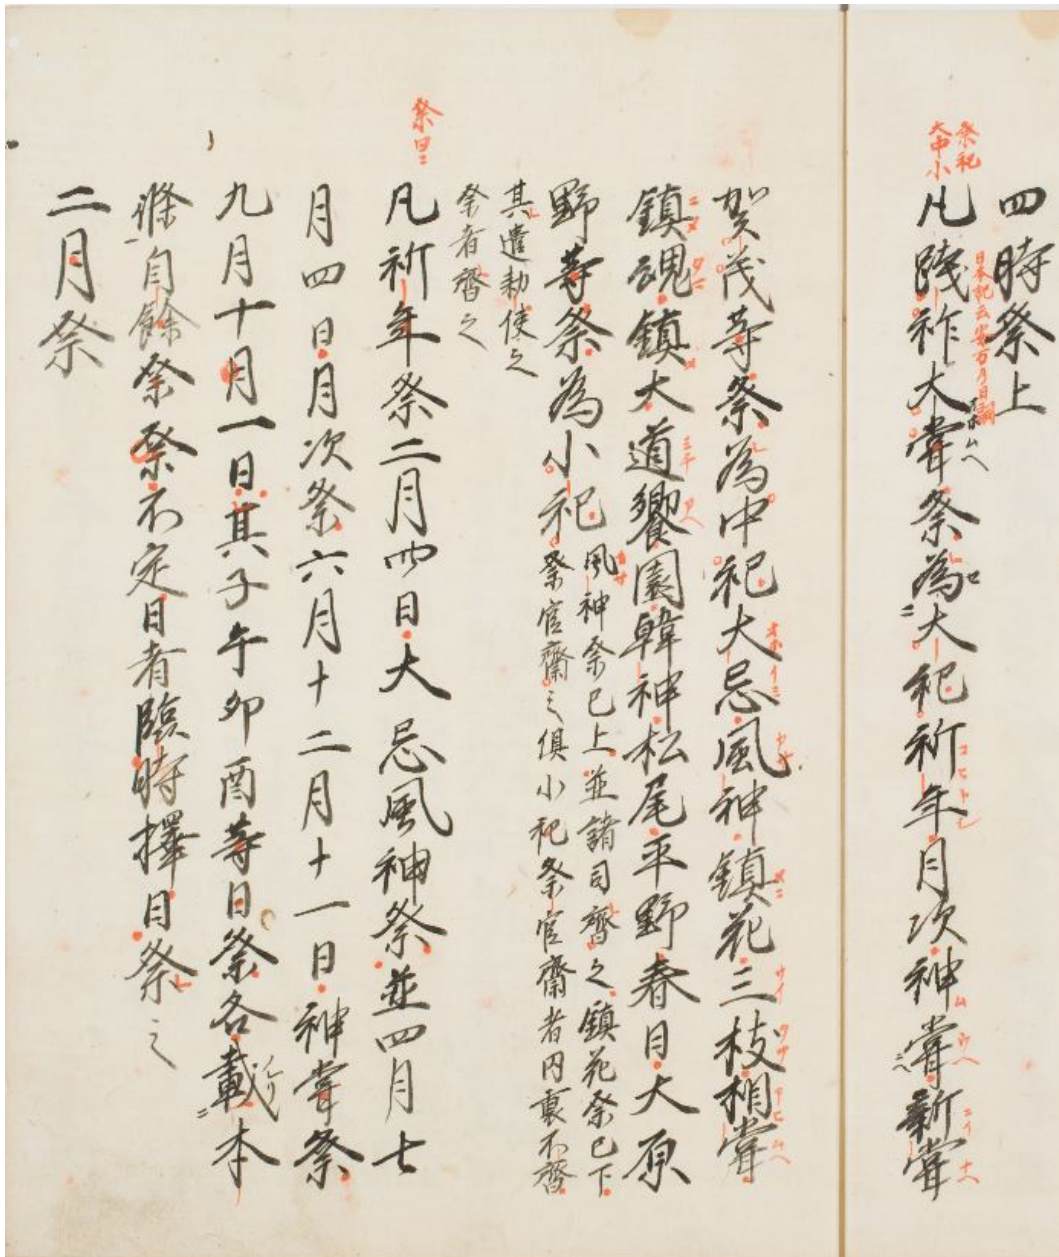 四時祭上
祭祀
大中小
凡踐祚大甞祭為大祀祈年月次神甞新甞
賀茂等祭為中祀大忌風神鎮花三枝相甞
鎮魂鎮火道饗園韓神松尾平野春日大原
野等祭為小祀
風神祭已上並諸司齊之鎮花祭已下
祭官齋之俱小祀祭官齋者内裏不齊
其遣勅使之
祭者齊之
祭日
凡祈年祭二月四日大忌風神祭並四月七
月四日月次祭六月十二月十一日神甞祭
九月十月一日其子午卯酉等日祭各載本
條自餘祭祭不定日者臨時擇日祭之
二月祭